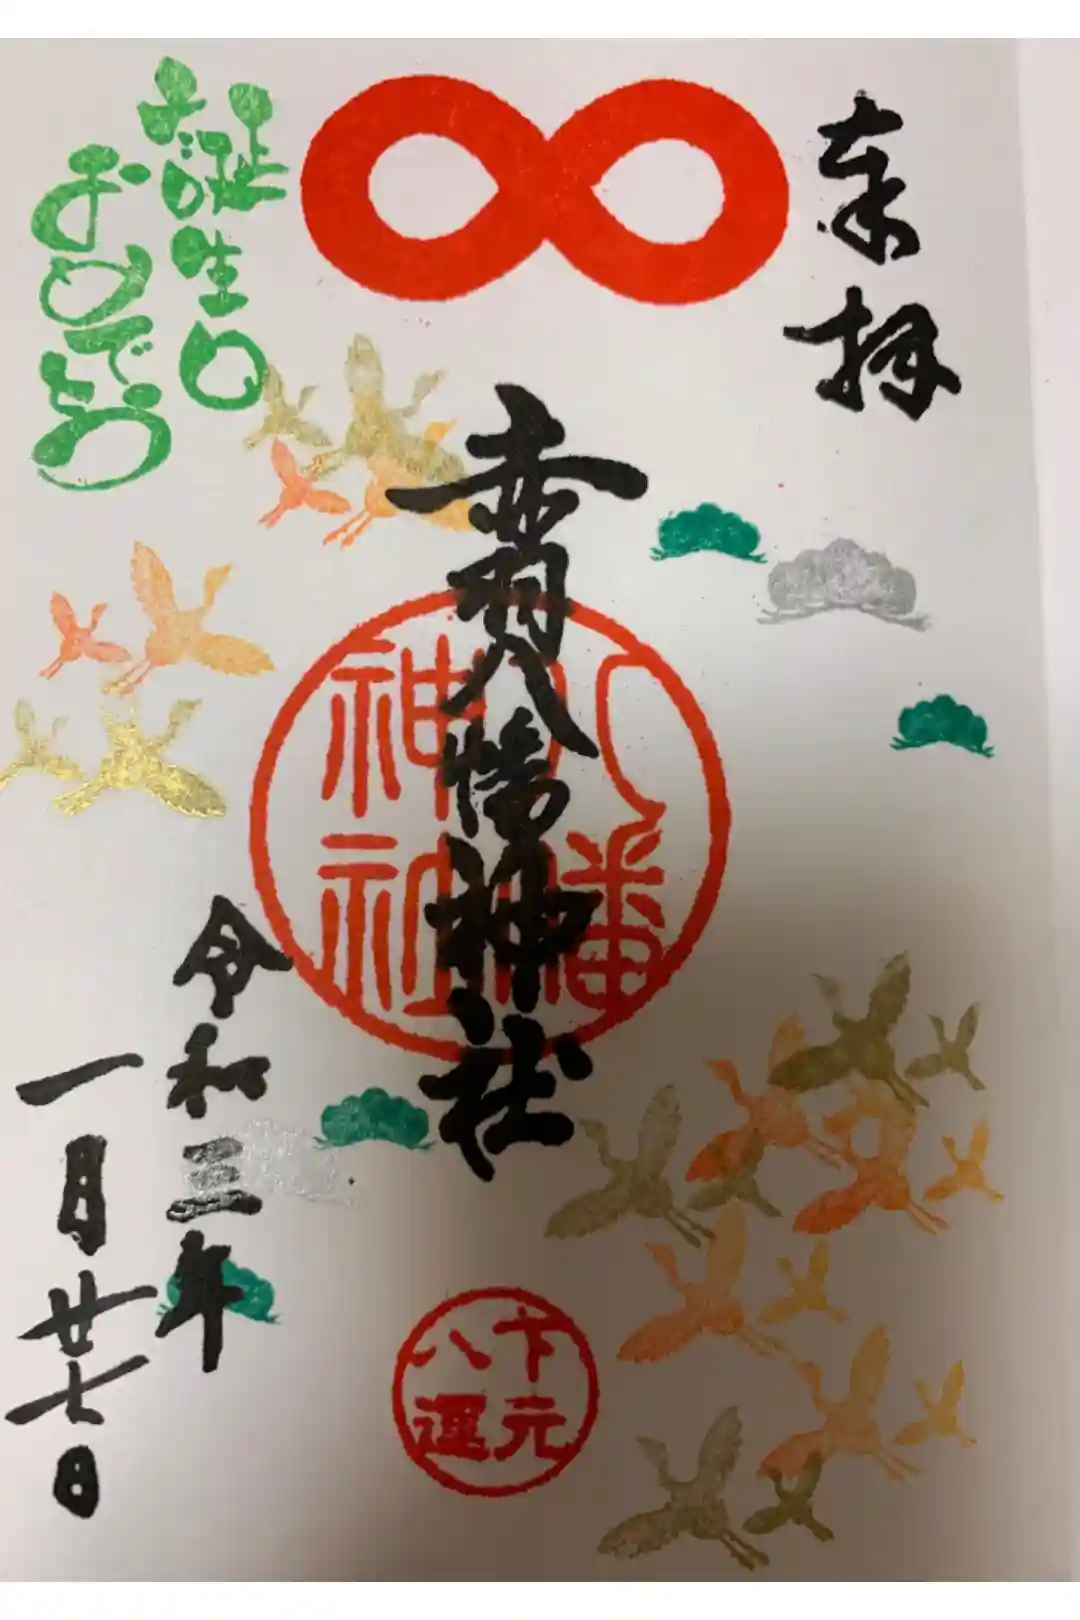 奉拝
赤羽八幡神社
八幡
神社
下元
八運
令和三年
一月廿七日
お誕生日
おめでとう